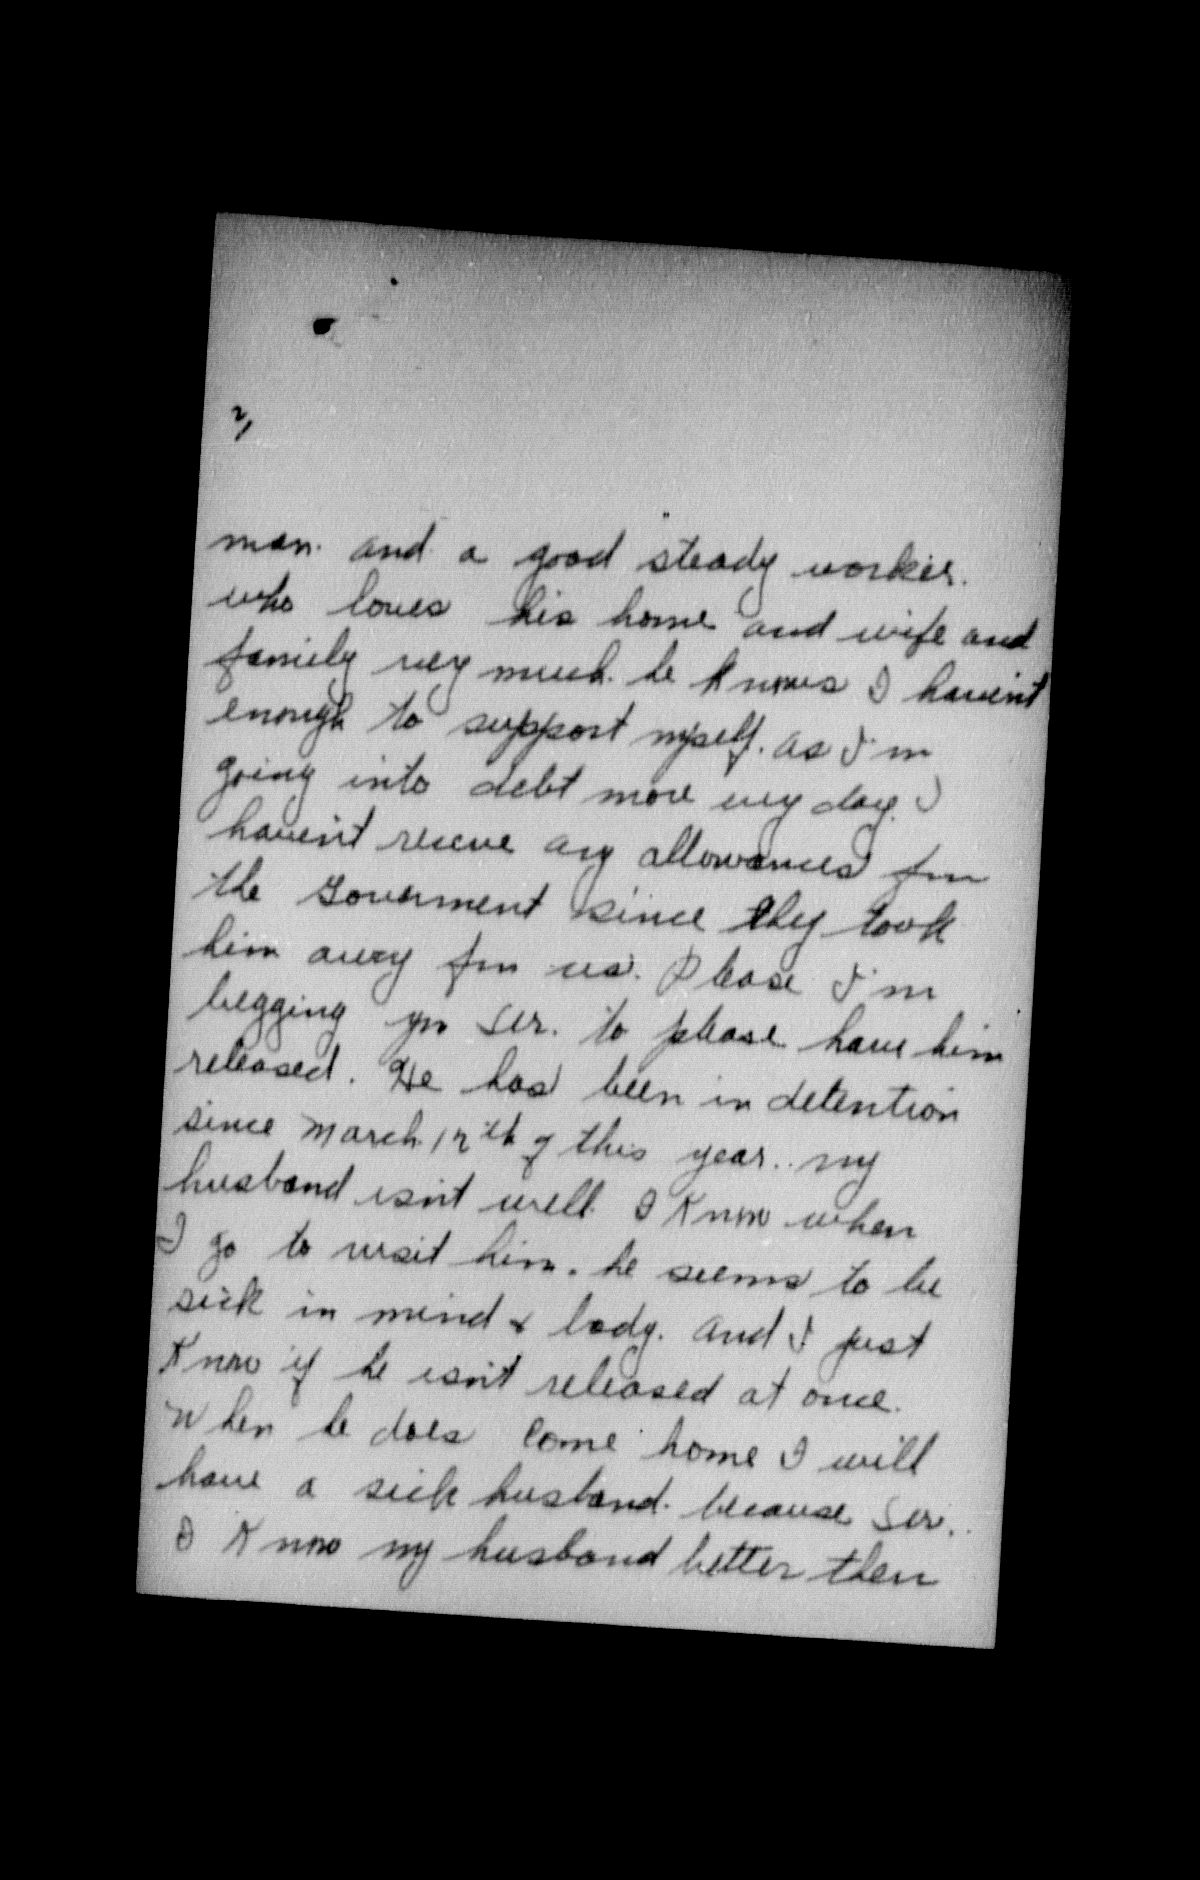 2/
man. and a good steady worker.
who loves his home and wife and
family very much. he knows I haven't
enough to support myself. as I'm
going into debt more every day. I
haven't recieve any allowances from
the Goverment since they took
him away from us. Please I'm
begging you Sir. to please have him
released. He has been in detention
since March 12th of this year.. my
husband isn't well. I Know when
I go to visit him. he seems to be
sick in mind & body. and I just
Know if he isn't released at once.
When he does come home I will
have a sick husband. because Sir..
I Know my husband better then